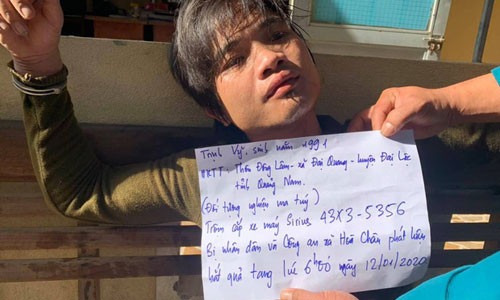 Trịnh Vỹ. sinh năm 1991
HKTT: Thôn Đông Lâm - xã Đại Quang - huyện Đại Lộc
tỉnh Quảng Nam.
(Đối tượng nghiện ma tuý)
Trộm cắp xe máy Sirius 43X3-5356
Bị nhân dân và Công an xã Hoà Châu phát hiện
bắt quả tang lúc 6h00 ngày 12/01/2020